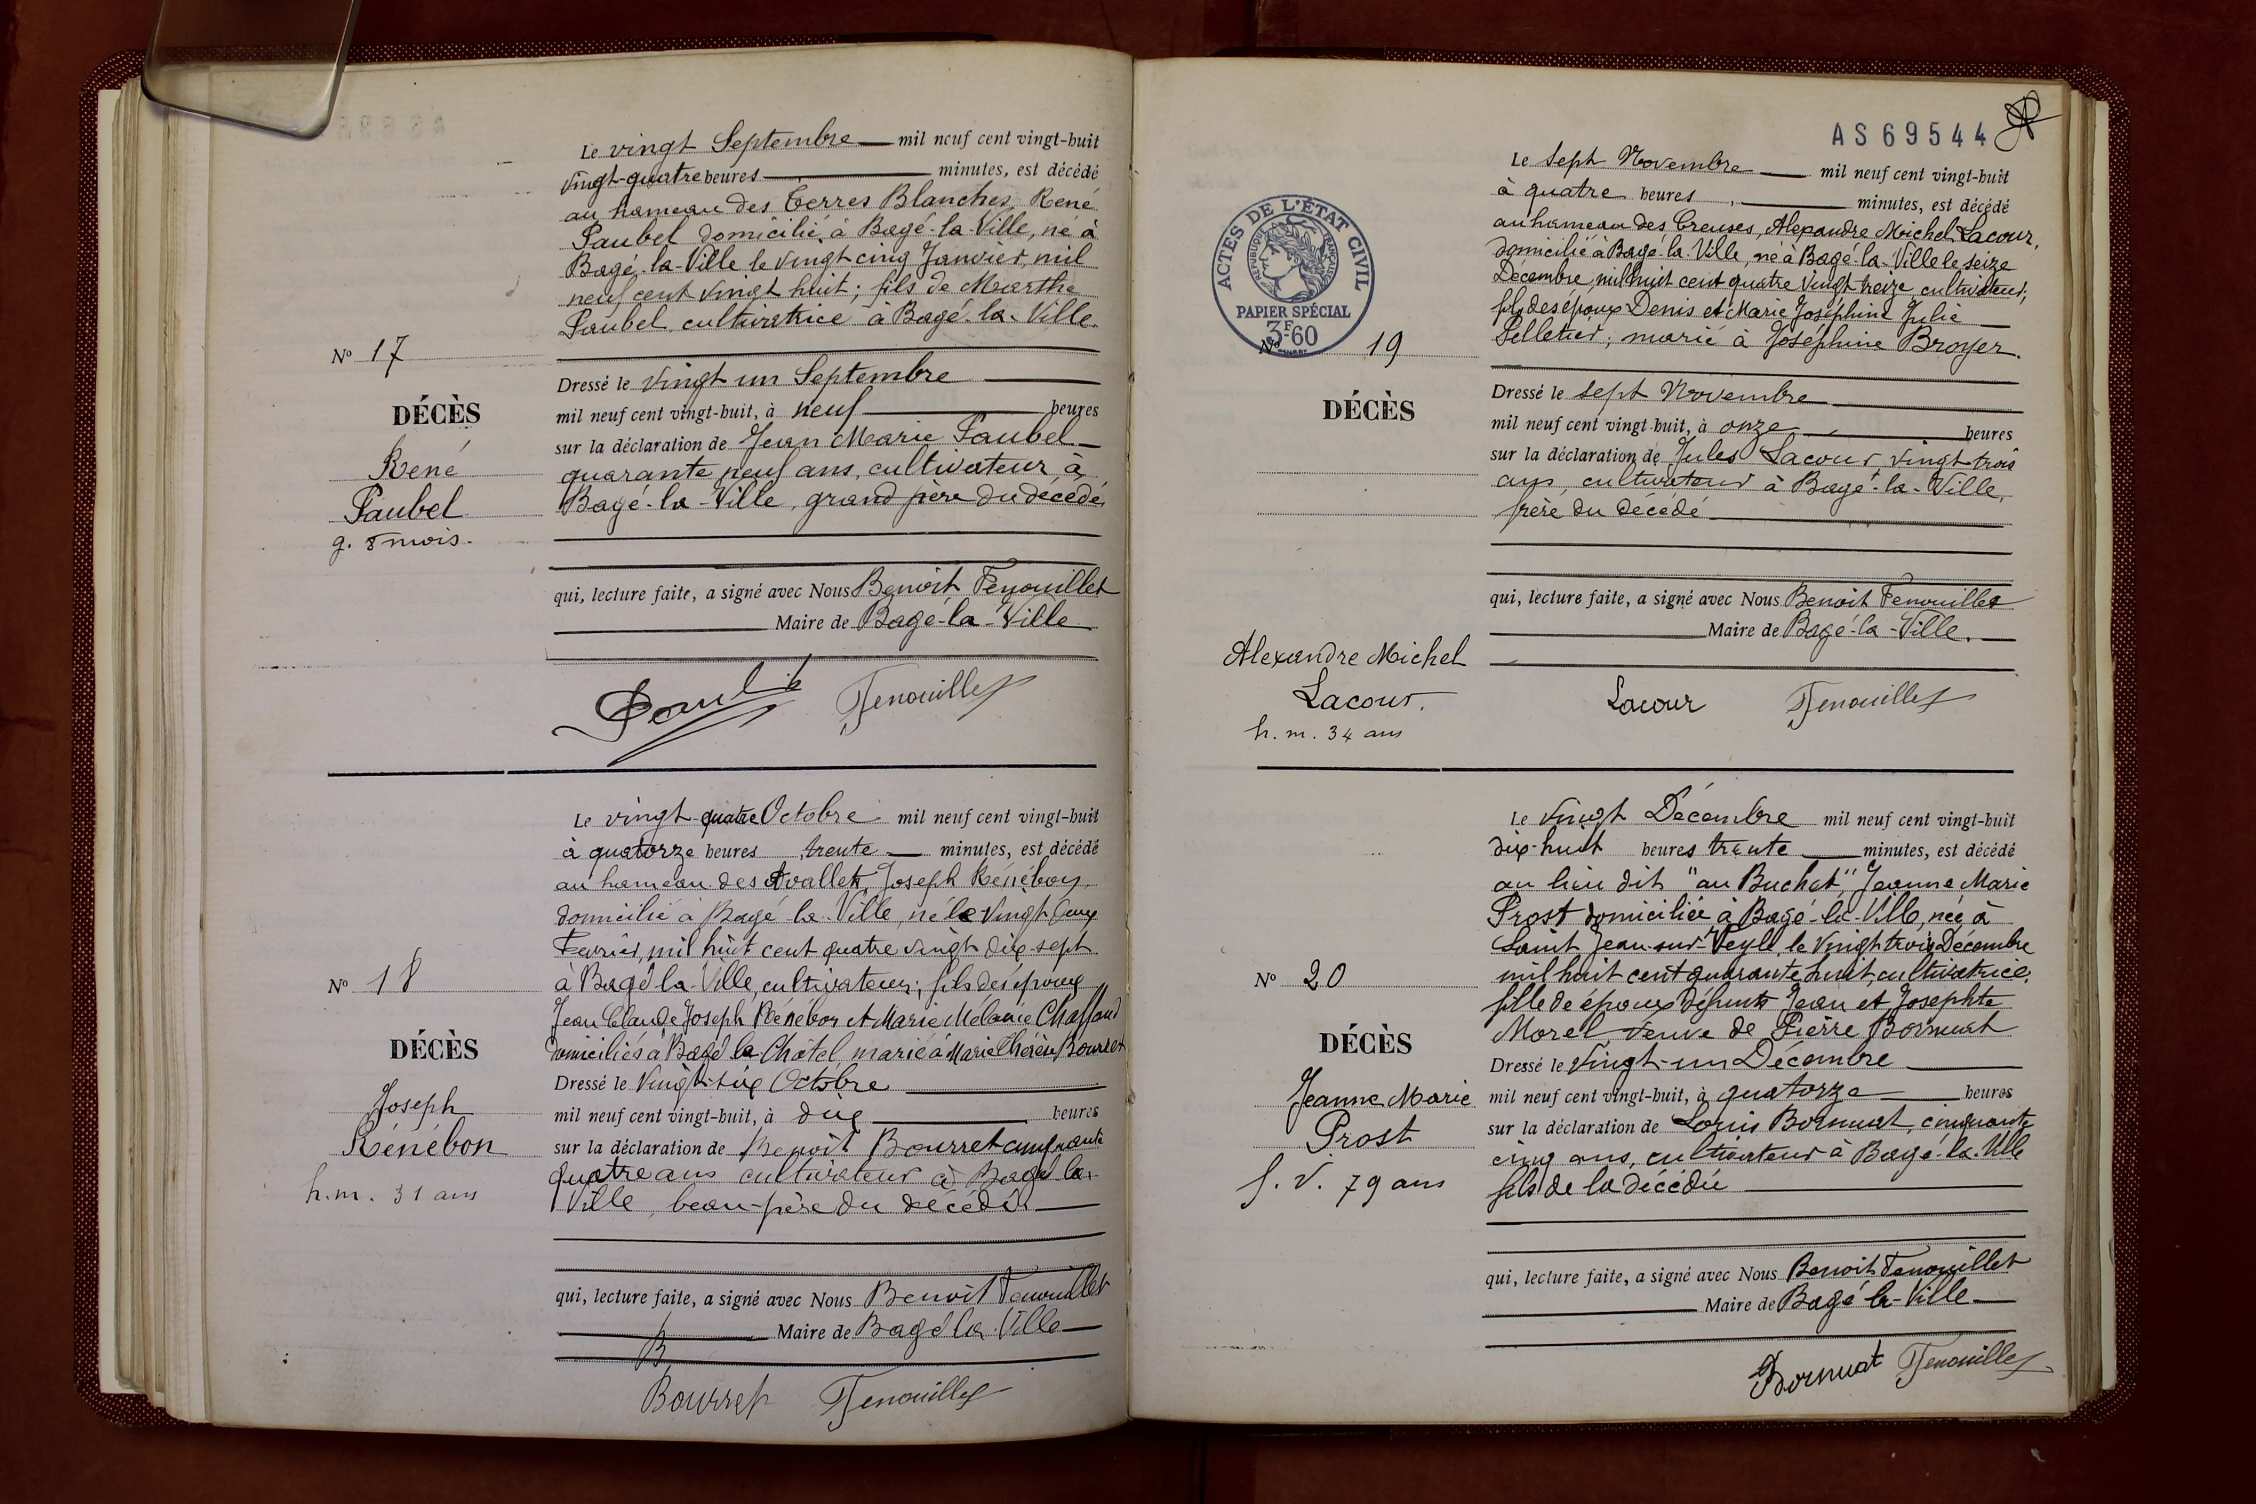 Le vingt Septembre mil neuf cent vingt-huit
vingt-quatre heures minutes, est décédé
au hameau des Terres Blanches, René
Paubel domicilié à Bagé-la-Ville, né à
Bagé-la-Ville le vingt cinq Janvier mil
neuf cent vingt huit; fils de Marthe
Paubel cultivatrice à Bagé-la-Ville.
No 17
Dressé le vingt un Septembre
DÉCÈS
mil neuf cent vingt-huit, à neuf heures
sur la déclaration de Jean Marie Paubel
René
quarante neuf ans, cultivateur à
Paubel
Bagé-la-Ville, grand père du décédé
g. 8 mois.
qui, lecture faite, a signé avec Nous Benoît Fenouillet
Maire de Bagé-la-Ville
Fenouillet
Le vingt-quatre Octobre mil neuf cent vingt-huit
à quatorze heures trente minutes, est décédé
au hameau des Joseph Rénébon,
domicilié à Bagé-la-Ville, né le vingt deux
Fevrier, mil huit cent quatre vingt dix-sept
No 18
à Bagé la-Ville, cultivateur; fils des époux
Jean Claude Joseph Rénébon et Marie Mélanie
DÉCÈS
domiciliés à Bagé le Châtel, marié à Marie Thérèse Bourret
Dressé le Vingt-six Octobre
Joseph
mil neuf cent vingt-huit, à dix heures
Rénébon
sur la déclaration de Benoît Bourret cinquante
h.m. 31 ans
quatre ans cultivateur à Bagé la
Ville, beau-père du décédé
qui, lecture faite, a signé avec Nous Benoît Fenouillet
Maire de Bagé la Ville
B
Bourret Fenouillet
AS 69544
ACTES DE L'ÉTAT CIVIL
RÉPUBLIQUE FRANÇAISE
PAPIER SPÉCIAL
3F60
Le sept Novembre mil neuf cent vingt-huit
à quatre heures minutes, est décédé
au hameau des Creuses, Alexandre Michel Lacour,
domicilié à Bagé-la-Ville, né à Bagé-la-Ville le seize
Décembre, mil huit cent quatre vingt treize cultivateur,
fils des époux Denis et Marie Joséphine Julie
No 19
Pelletier; marié à Joséphine Broyer.
DÉCÈS
Dressé le sept Novembre
mil neuf cent vingt-huit, à onze heures
sur la déclaration de Jules Lacour, vingt trois
ans, cultivateur à Bagé-la-Ville,
frère du décédé
qui, lecture faite, a signé avec Nous Benoit Fenouillet
Maire de Bagé-la-Ville.
Alexandre Michel
Lacour.
h. m. 34 ans
Lacour Fenouillet
Le vingt Décembre mil neuf cent vingt-huit
dix-huit heures trente minutes, est décédé
au lieu dit "au Buchet", Jeanne Marie
Prost domiciliée à Bagé-la-Ville, née à
Saint Jean-sur-Veyle, le vingt trois Décembre
No 20
mil huit cent quarante huit, cultivatrice,
fille de époux défunts Jean et Josephte
Morel, veuve de Pierre Bornuat
DÉCÈS
Dressé le vingt-un Décembre
Jeanne Marie
mil neuf cent vingt-huit, à quatorze heures
Prost
sur la déclaration de Louis Bornuat, cinquante
f. v. 79 ans
cinq ans, cultivateur à Bagé-la-Ville
fils de la décédée
qui, lecture faite, a signé avec Nous Benoit Fenouillet
Maire de Bagé la-Ville
Bornuat Fenouillet